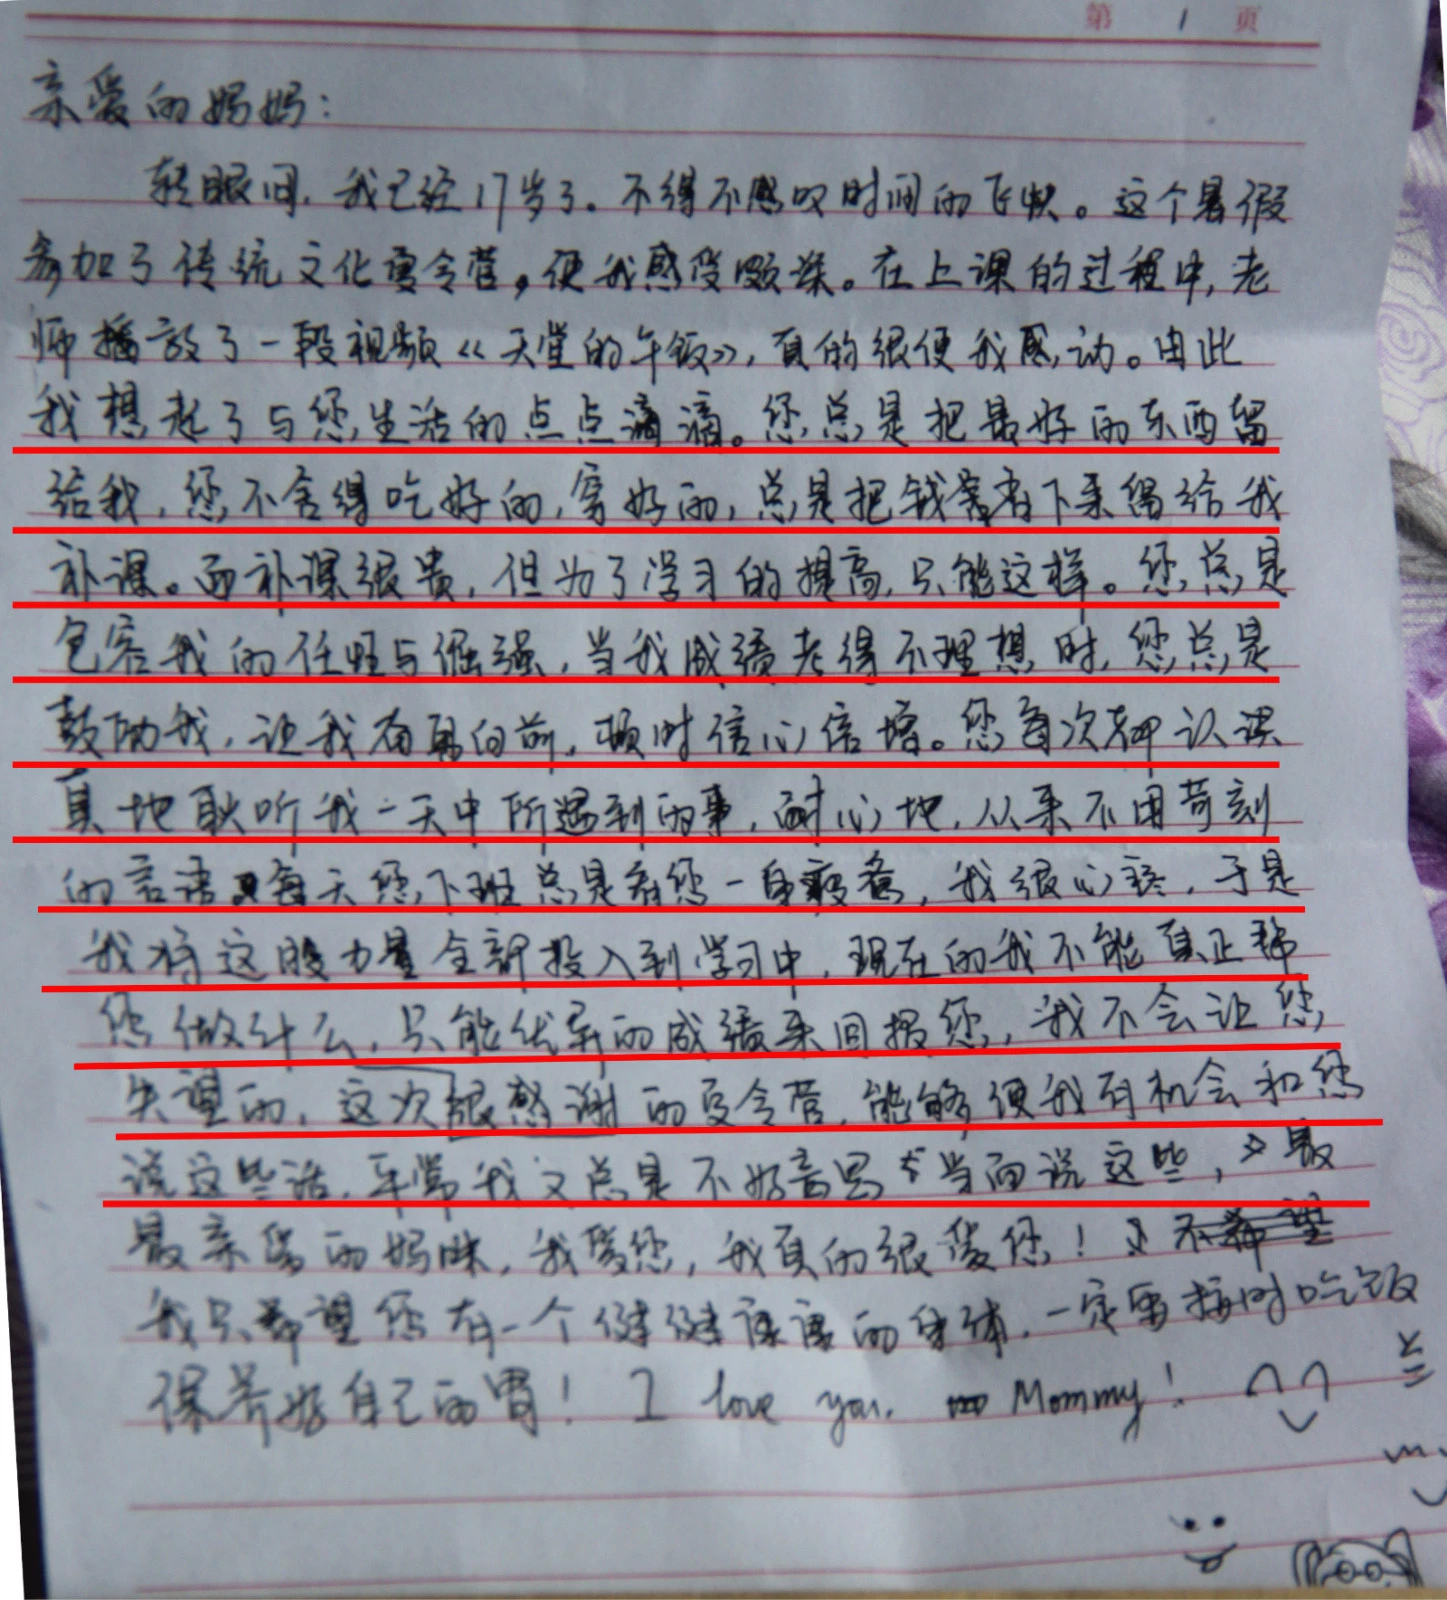 第 1 页
亲爱的妈妈：
转眼间，我已经17岁了。不得不感叹时间的飞快。这个暑假
参加了传统文化夏令营，使我感受颇深。在上课的过程中，老
师播放了一段视频《天堂的午饭》，真的很使我感动。由此
我想起了与您生活的点点滴滴。您总是把最好的东西留
给我，您不舍得吃好的，穿好的，总是把钱省下来留给我
补课。而补课很贵，但为了学习的提高，只能这样。您总是
包容我的任性与倔强，当我成绩考得不理想时，您总是
鼓励我，让我奋勇向前，顿时信心倍增。您每次都认误
真地耿听我一天中所遇到的事，耐心地，从来不用苛刻
的言语，每天您下班总是看您一身疲惫，我很心疼，于是
我将这股力量全部投入到学习中，现在的我不能真正帮
您做什么，只能优异的成绩来回报您，我不会让您
失望的，这次很感谢的夏令营，能够使我有机会和您
说这些话，平常我又总是不好意思当面说这些，最
最亲爱的妈咪，我爱您，我真的很爱您！不希望
我只希望您有一个健健康康的身体，一定要按时吃饭
保养好自己的胃！I love you. Mommy!